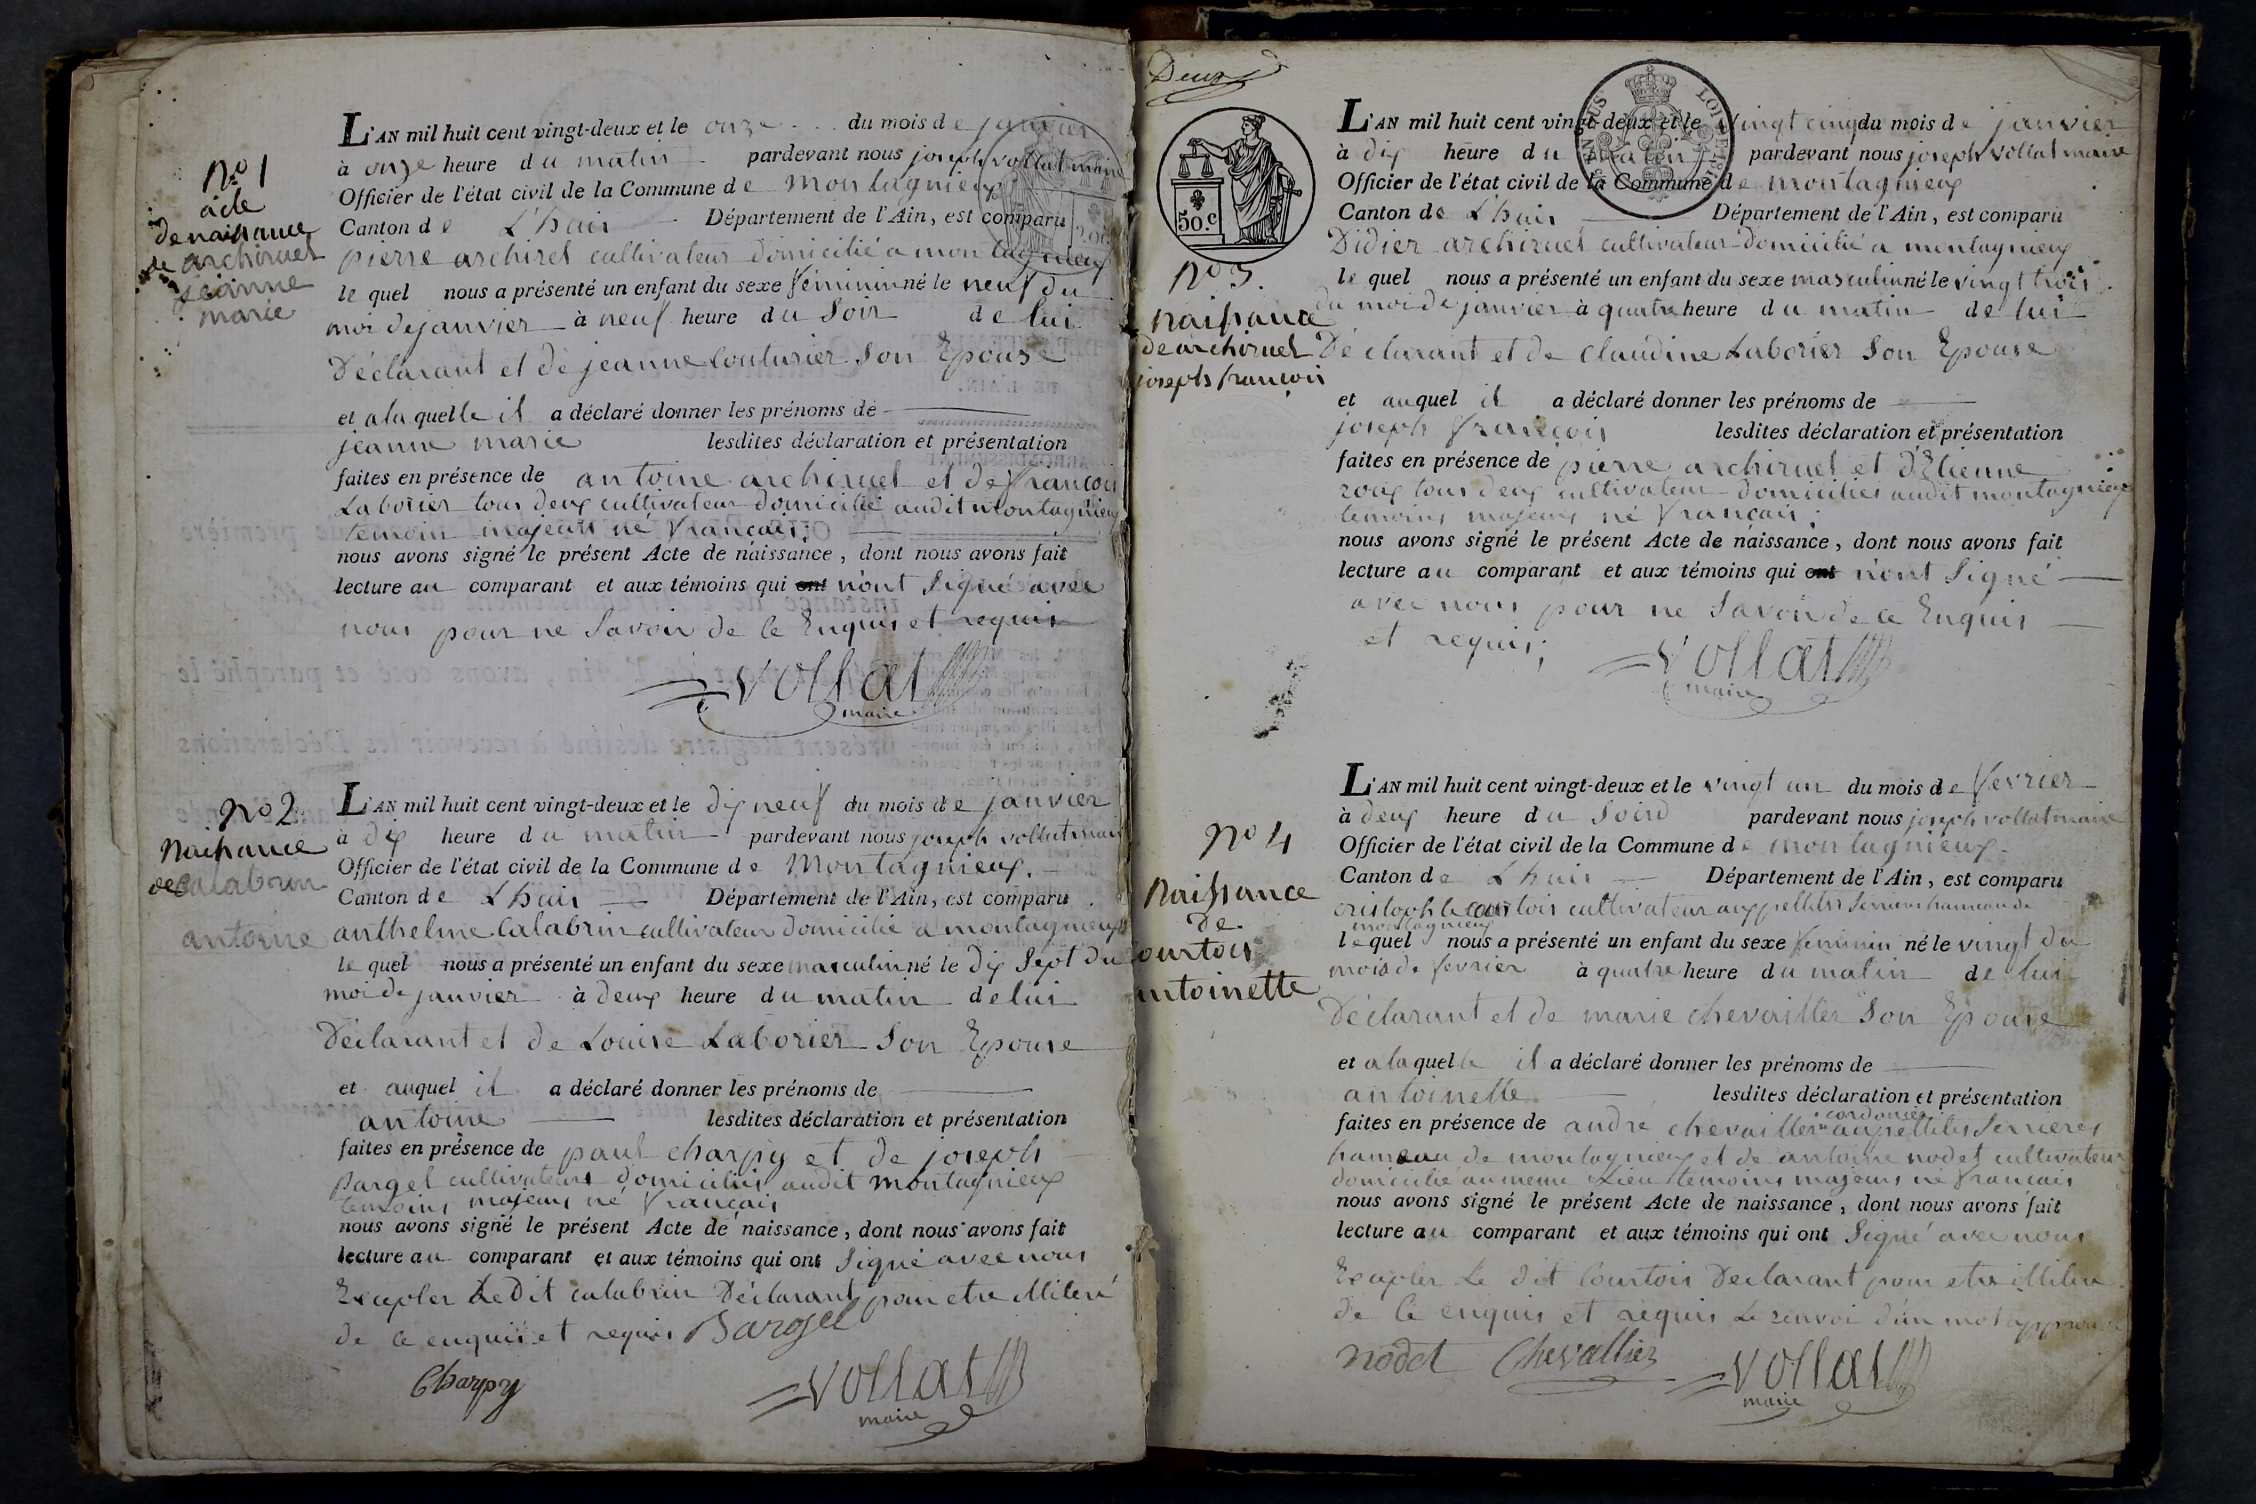 N.o 1
acte
de naissance
de archiruel
jeanne
marie
L'AN mil huit cent vingt-deux et le onze du mois de janvier
à onze heure du matin pardevant nous joseph vollat maire
Officier de l'état civil de la Commune de Montagnieux
Canton de Lhuis Département de l'Ain, est comparu
pierre archirel cultivateur domicilié a montagnieux
le quel nous a présenté un enfant du sexe féminin né le neuf du
moi de janvier à neuf heure du Soir de lui
Déclarant et de jeanne Couturier Son Epouse
et a la quelle il a déclaré donner les prénoms de
jeanne marie lesdites déclaration et présentation
faites en présence de antoine archiruel et de françois
Laborier tous deux cultivateur domicilié audit montagnieux
temoin majeurs né français;
nous avons signé le présent Acte de naissance, dont nous avons fait
lecture au comparant et aux témoins qui ont n'ont Signé avec
nous pour ne Savoir de ce Enquis et requis
vollat
maire
N.o 2
Naissance
de Calabrin
antoine
L'AN mil huit cent vingt-deux et le dix neuf du mois de janvier
à dix heure du matin pardevant nous joseph vollat maire
Officier de l'état civil de la Commune de Montagnieux.
Canton de Lhuis Département de l'Ain, est comparu
anthelme Calabrin cultivateur domicilié a montagnieux
le quel nous a présenté un enfant du sexe masculin né le dix Sept du
moi de janvier à deux heure du matin de lui
Déclarant et de Louise Laborier Son Epouse
et auquel il a déclaré donner les prénoms de
antoine lesdites déclaration et présentation
faites en présence de paul charpy et de joseph
Bargel cultivateurs domiciliés audit montagnieux
temoins majeurs né français
nous avons signé le présent Acte de naissance, dont nous avons fait
lecture au comparant et aux témoins qui ont Signé avec nous
Excepter Le Dit calabrin Déclarant pour etre illiteré
de ce enquis et requis Bargel
Charpy
vollat
maire
Deux
50. c
N.o 3.
Naissance
de archiruel
joseph françois
L'AN mil huit cent vingt-deux et le vingt cinq du mois de janvier
à dix heure du matin pardevant nous joseph vollat maire
Officier de l'état civil de la Commune de montagnieux
Canton de Lhuis Département de l'Ain, est comparu
Didier archiruel cultivateur domicilié a montagnieux
le quel nous a présenté un enfant du sexe masculin né le vingt trois
du moi de janvier à quatre heure du matin de lui
Déclarant et de Claudine Laborier Son Epouse
et auquel il a déclaré donner les prénoms de
joseph françois lesdites déclaration et présentation
faites en présence de pierre archiruel et d'Etienne
roux tous deux cultivateur domiciliés audit montagnieux
temoins majeurs né français;
nous avons signé le présent Acte de naissance, dont nous avons fait
lecture au comparant et aux témoins qui ont n'ont Signé
avec nous pour ne Savoir de ce Enquis
et requis;
vollat
maire
N.o 4
Naissance
de
Courtois
antoinette
L'AN mil huit cent vingt-deux et le vingt un du mois de février
à deux heure du Soird pardevant nous joseph vollat maire
Officier de l'état civil de la Commune de montagnieux
Canton de Lhuis Département de l'Ain, est comparu
cristophle courtois cultivateur aux petittes Serrieres hameau de
montagnieux
le quel nous a présenté un enfant du sexe féminin né le vingt du
mois de fevrier à quatre heure du matin de lui
Déclarant et de marie chevallier Son Epouse
et a la quelle il a déclaré donner les prénoms de
antoinette lesdites déclaration et présentation
cordonier
faites en présence de andré chevaillier aux petittes Serrieres
hameau de montagnieux et de antoine nodet cultivateur
domicilié au meme Lieu temoins majeurs né français
nous avons signé le présent Acte de naissance, dont nous avons fait
lecture au comparant et aux témoins qui ont Signé avec nous
Excepter Le dit Courtois Declarant pour etre illiteré
de Ce enquis et requis Le renvoi d'un mot approuvé
nodet Chevallier vollat
maire